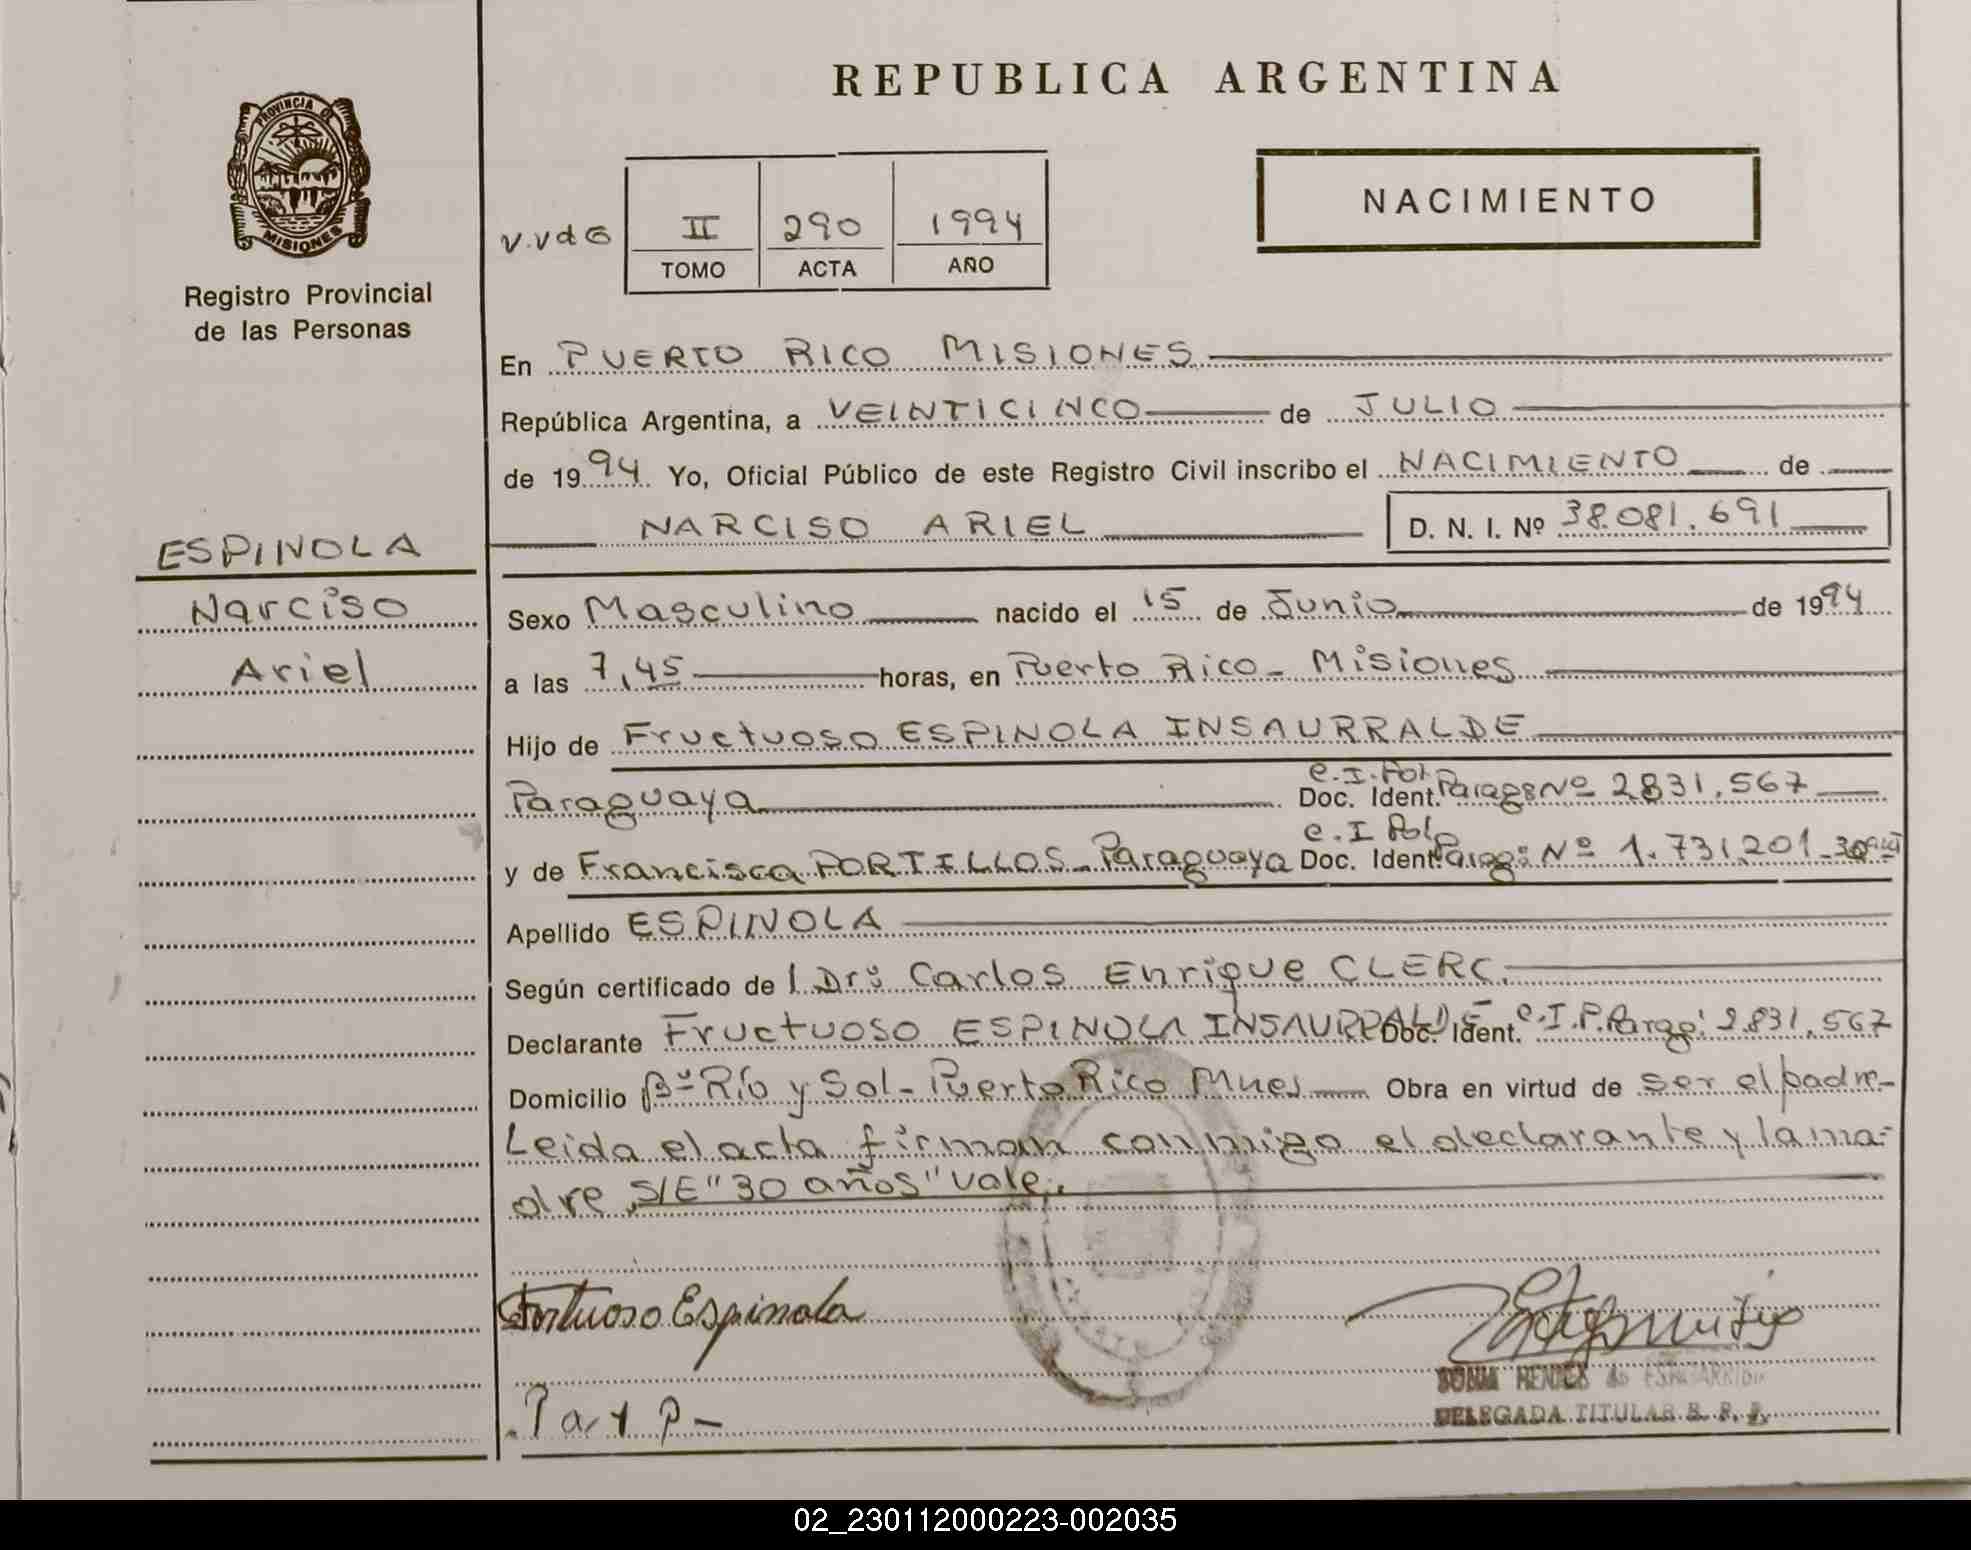 REPUBLICA ARGENTINA
PROVINCIA DE
MISIONES
Registro Provincial
de las Personas
NACIMIENTO
V.V d G
II 290 1994
TOMO ACTA AÑO
En PUERTO RICO MISIONES
República Argentina, a VEINTICINCO de JULIO
de 1994 Yo, Oficial Público de este Registro Civil inscribo el NACIMIENTO de
NARCISO ARIEL D. N. I. Nº 38.081.691
ESPINOLA
Narciso
Ariel
Sexo Masculino nacido el 15 de Junio de 1994
a las 7,45 horas, en Puerto Rico - Misiones
Hijo de Fructuoso ESPINOLA INSAURRALDE
Paraguaya Doc. Ident. C.I. Pol. Parag: Nº 2831.567
y de Francisca PORTILLOS - Paraguaya Doc. Ident. C.I Pol Parag: Nº 1.731.201 - 30
Apellido ESPINOLA
Según certificado de l Dr: Carlos Enrique CLERC.
Declarante Fructuoso ESPINOLA INSAURRALDE Doc. Ident. C.I.P. Parag: 2.831.567
Domicilio Bº Río y Sol - Puerto Rico Mnes Obra en virtud de ser el padre -
Leida el acta firman conmigo el declarante y la ma-
dre S/E "30 años" vale.
Espinola
SONIA
DELEGADA TITULAR R. P. P.
02_230112000223-002035